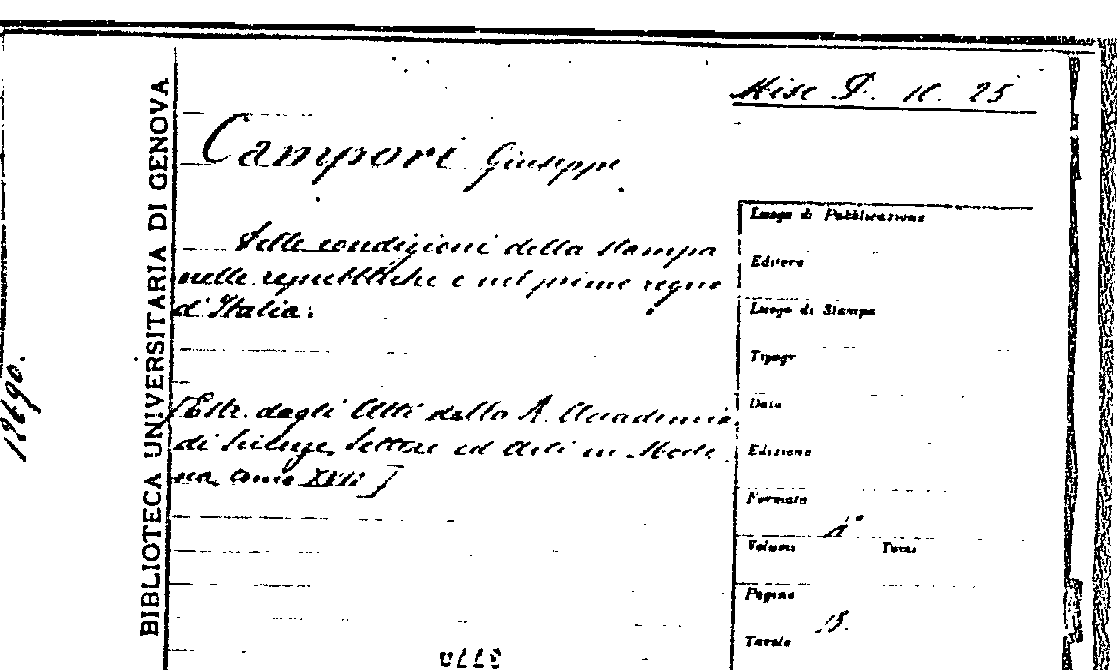 BIBLIOTECA UNIVERSITARIA DI GENOVA
Misc
25
Campori Giuseppe
Delle condizioni della stampa
nelle repubbliche e nel primo regno
d'Italia.
[Estr. dagli Atti della R. Accademia
di Scienze, Lettere ed Arti in Mode
na, tomo XVII]
Luogo di Pubblicazione
Editore
Luogo di Stampa
Tipogr
Data
Edizione
Formato
4°
Volumi Tomi
Pagine
Tavole